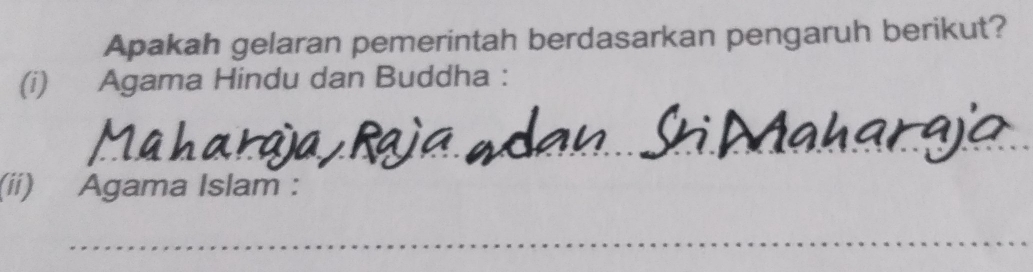 Apakah gelaran pemerintah berdasarkan pengaruh berikut?
(i) Agama Hindu dan Buddha :
Maharaja, Raja dan Sri Maharaja
(ii) Agama Islam :